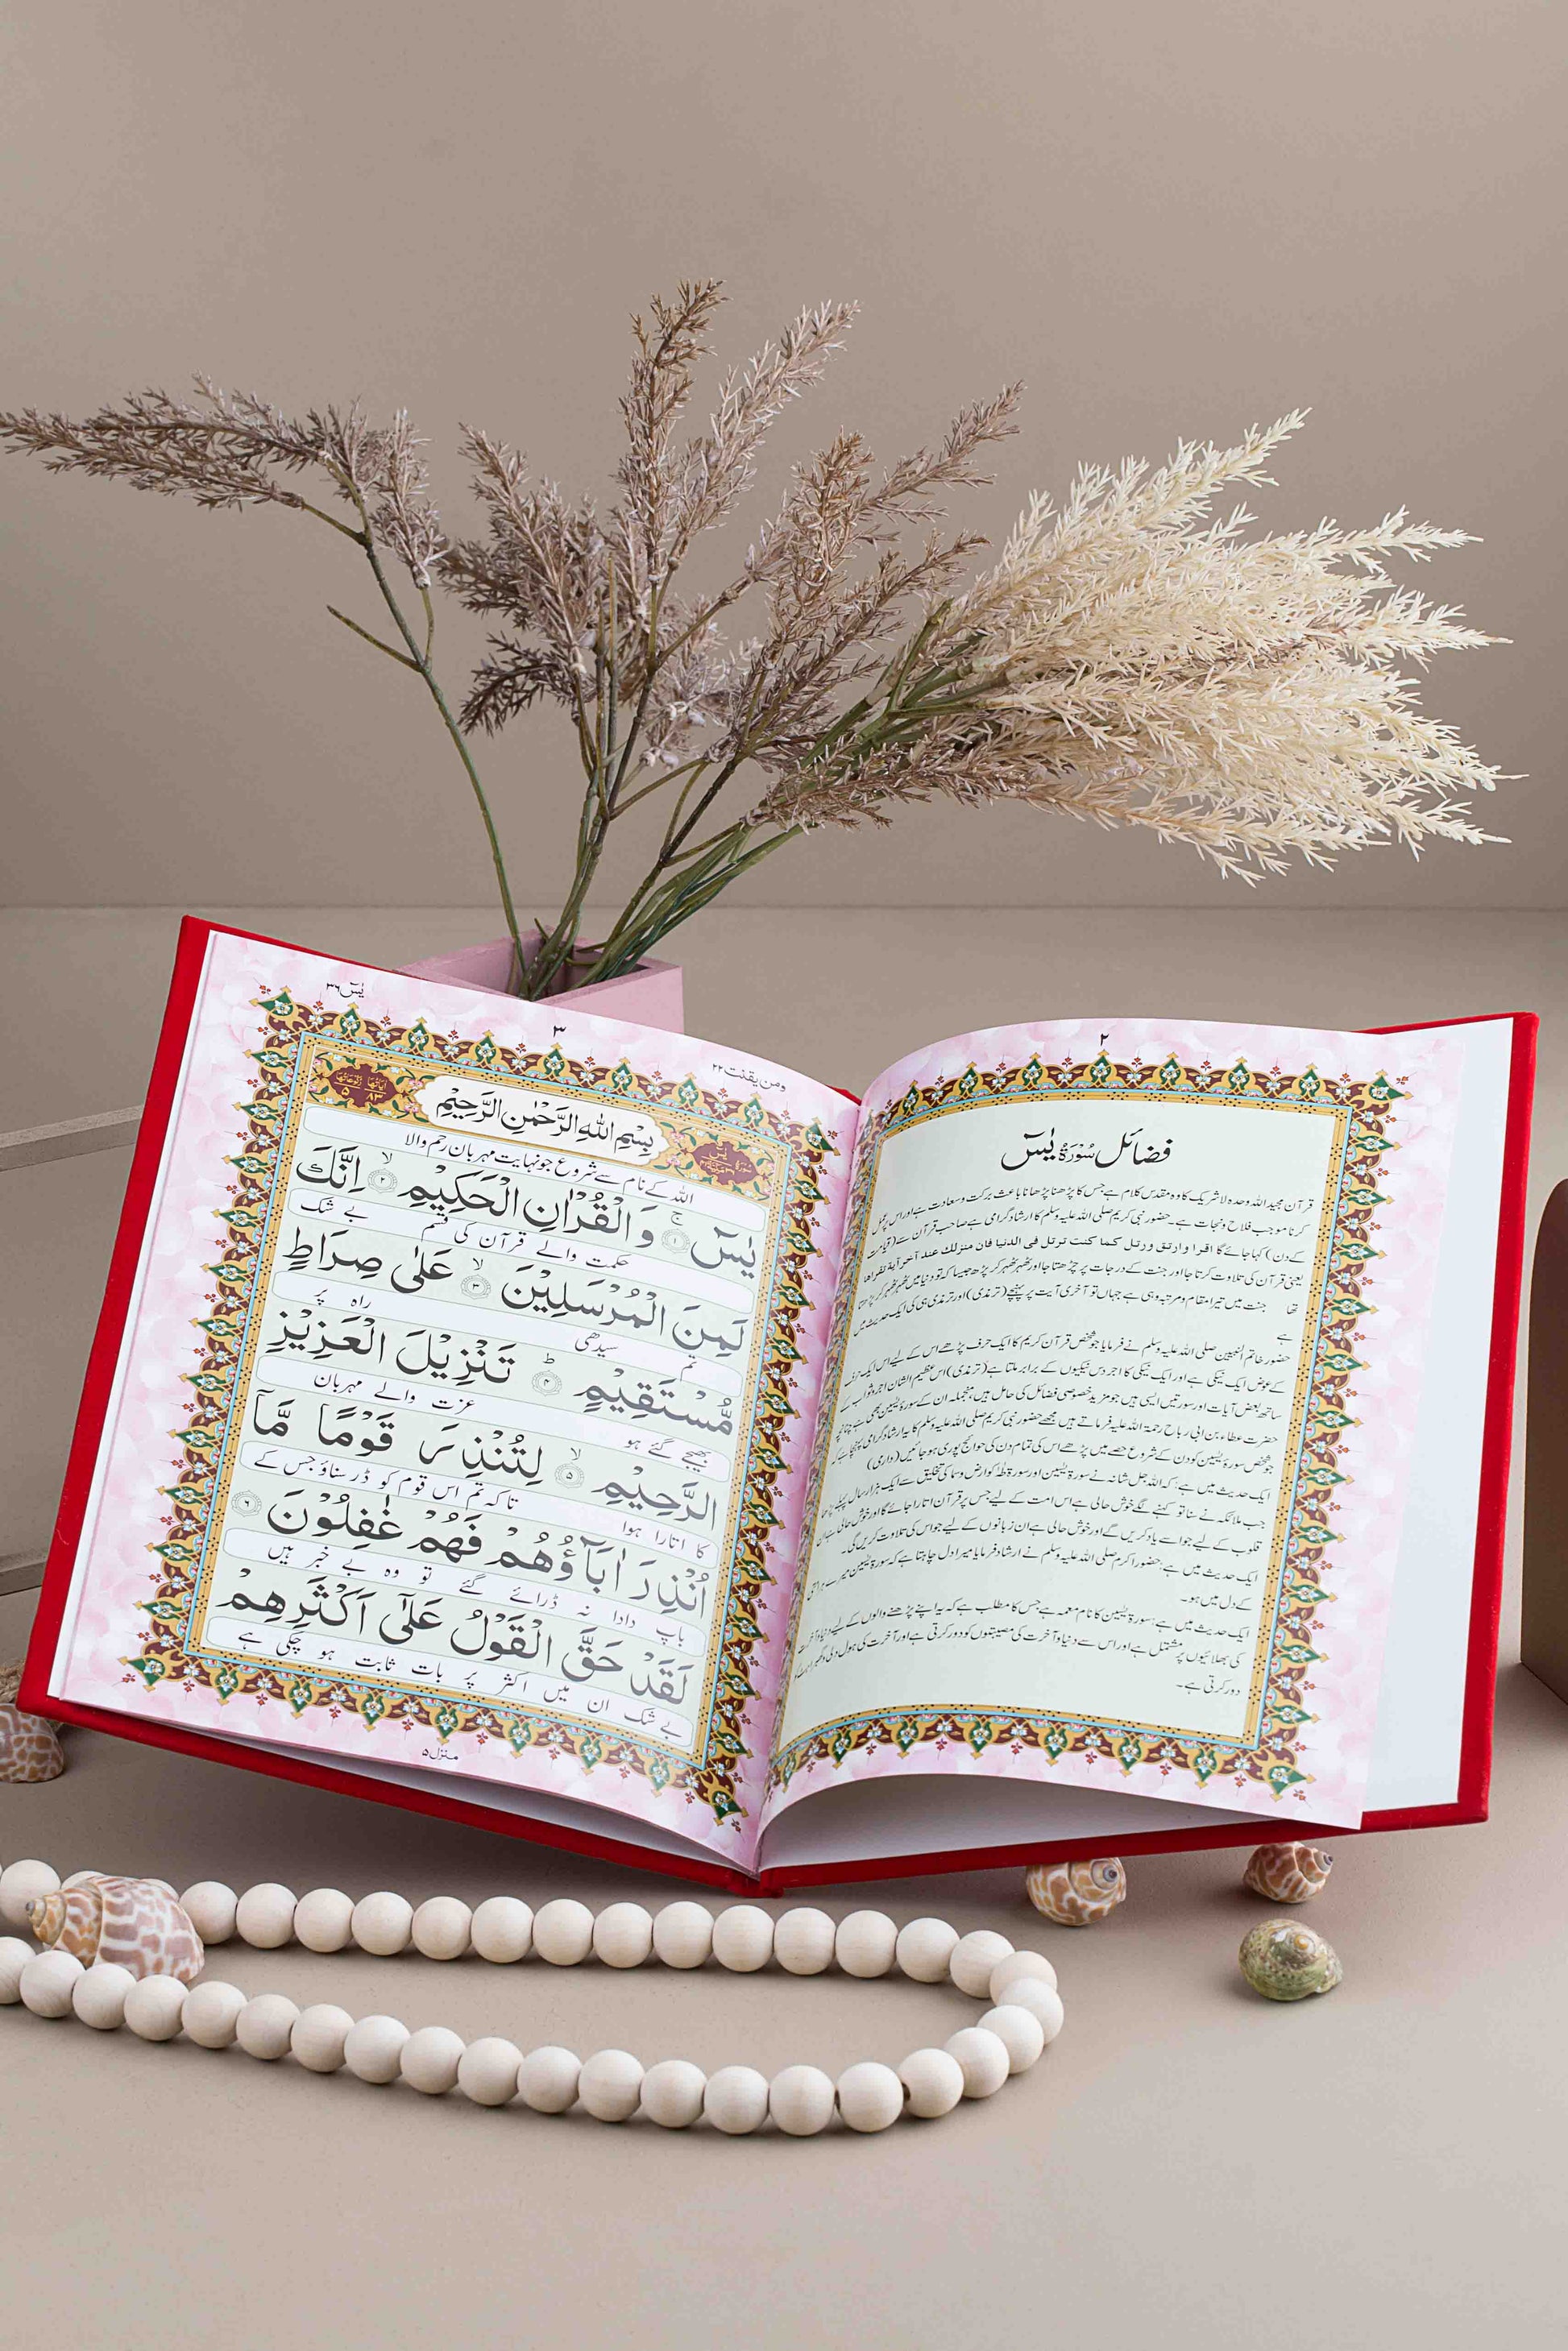 ٢
فضائل سُوْرَةُ يٰسٓ
قرآن مجید اللہ وحدہ لاشریک کا وہ مقدس کلام ہے جس کا پڑھنا پڑھانا باعث برکت وسعادت ہے اور اس پر عمل
کرنا موجب فلاح ونجات ہے۔ حضور نبی کریم صلی اللہ علیہ وسلم کا ارشاد گرامی ہے صاحب قرآن سے (قیامت
کے دن) کہا جائے گا اقرا وارتق ورتل کما کنت ترتل فی الدنیا فان منزلك عند آخر آیة تقراها
یعنی قرآن کی تلاوت کرتا جا اور جنت کے درجات پر چڑھتا جا اور ٹھہر ٹھہر کر پڑھ جیسا کہ تو دنیا میں ٹھہر ٹھہر کر پڑھتا
تھا جنت میں تیرا مقام ومرتبہ وہی ہے جہاں تو آخری آیت پر پہنچے (ترمذی) اور ترمذی ہی کی ایک حدیث میں
ہے
حضور خاتم النبیین صلی اللہ علیہ وسلم نے فرمایا جو شخص قرآن کریم کا ایک حرف پڑھے اس کے لیے اس ایک حرف
کے عوض ایک نیکی ہے اور ایک نیکی کا اجر دس نیکیوں کے برابر ملتا ہے (ترمذی) اس عظیم الشان اجر وثواب کے
ساتھ بعض آیات اور سورتیں ایسی ہیں جو مزید خصوصی فضائل کی حامل ہیں، منجملہ ان کے سورۃ یٰسین بھی ہے چنانچہ
حضرت عطاء بن ابی رباح رحمۃ اللہ علیہ فرماتے ہیں مجھے حضور نبی کریم صلی اللہ علیہ وسلم کا یہ ارشاد گرامی پہنچا ہے کہ
جو شخص سورۃ یٰسین کو دن کے شروع حصے میں پڑھے اس کی تمام دن کی حوائج پوری ہوجائیں (دارمی)
ایک حدیث میں ہے: کہ اللہ جل شانہ نے سورۃ یٰسین اور سورۃ طٰہٰ کو ارض وسما کی تخلیق سے ایک ہزار سال پہلے پڑھا
جب ملائکہ نے سنا تو کہنے لگے خوش حالی ہے اس امت کے لیے جس پر قرآن اتارا جائے گا اور خوش حالی ہے ان
قلوب کے لیے جو اسے یاد کریں گے اور خوش حالی ہے ان زبانوں کے لیے جو اس کی تلاوت کریں گی۔
ایک حدیث میں ہے: حضور اکرم صلی اللہ علیہ وسلم نے ارشاد فرمایا میرا دل چاہتا ہے کہ سورۃ یٰسین میرے ہر امتی
کے دل میں ہو۔
ایک حدیث میں ہے: سورۃ یٰسین کا نام معمہ ہے جس کا مطلب ہے کہ یہ اپنے پڑھنے والوں کے لیے دنیا وآخرت
کی بھلائیوں پر مشتمل ہے اور اس سے دنیا وآخرت کی مصیبتوں کو دور کرتی ہے اور آخرت کی ہول
دور کرتی ہے۔
ومن یقنت ٢٢
٣
یٰسٓ ٣٦
سُوْرَةُ یٰسٓ
بِسْمِ اللهِ الرَّحْمٰنِ الرَّحِيْمِ
اٰيَاتُهَا ٨٣ رُكُوْعَاتُهَا ٥
اللہ کے نام سے شروع جو نہایت مہربان رحم والا
يٰسٓ ۚ ١ وَالْقُرْاٰنِ الْحَكِيْمِ ۙ ٢ اِنَّكَ
حکمت والے قرآن کی قسم بے شک
لَمِنَ الْمُرْسَلِيْنَ ۙ ٣ عَلٰى صِرَاطٍ
تم سیدھی راہ پر
مُّسْتَقِيْمٍ ؕ ٤ تَنْزِيْلَ الْعَزِيْزِ
بھیجے گئے ہو عزت والے مہربان
الرَّحِيْمِ ۙ ٥ لِتُنْذِرَ قَوْمًا مَّاۤ
کا اتارا ہوا تاکہ تم اس قوم کو ڈر سناؤ جس کے
اُنْذِرَ اٰبَآؤُهُمْ فَهُمْ غٰفِلُوْنَ ٦
باپ دادا نہ ڈرائے گئے تو وہ بے خبر ہیں
لَقَدْ حَقَّ الْقَوْلُ عَلٰۤى اَكْثَرِهِمْ
بے شک ان میں اکثر پر بات ثابت ہو چکی ہے
منزل ۵